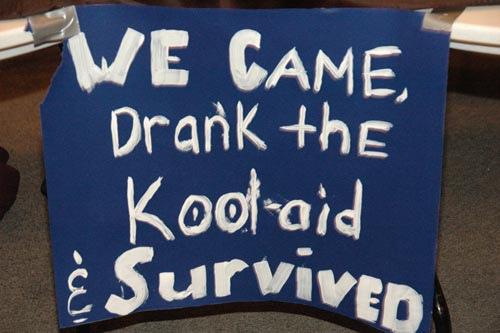 WE CAME,
Drank the
Kool-aid
& Survived